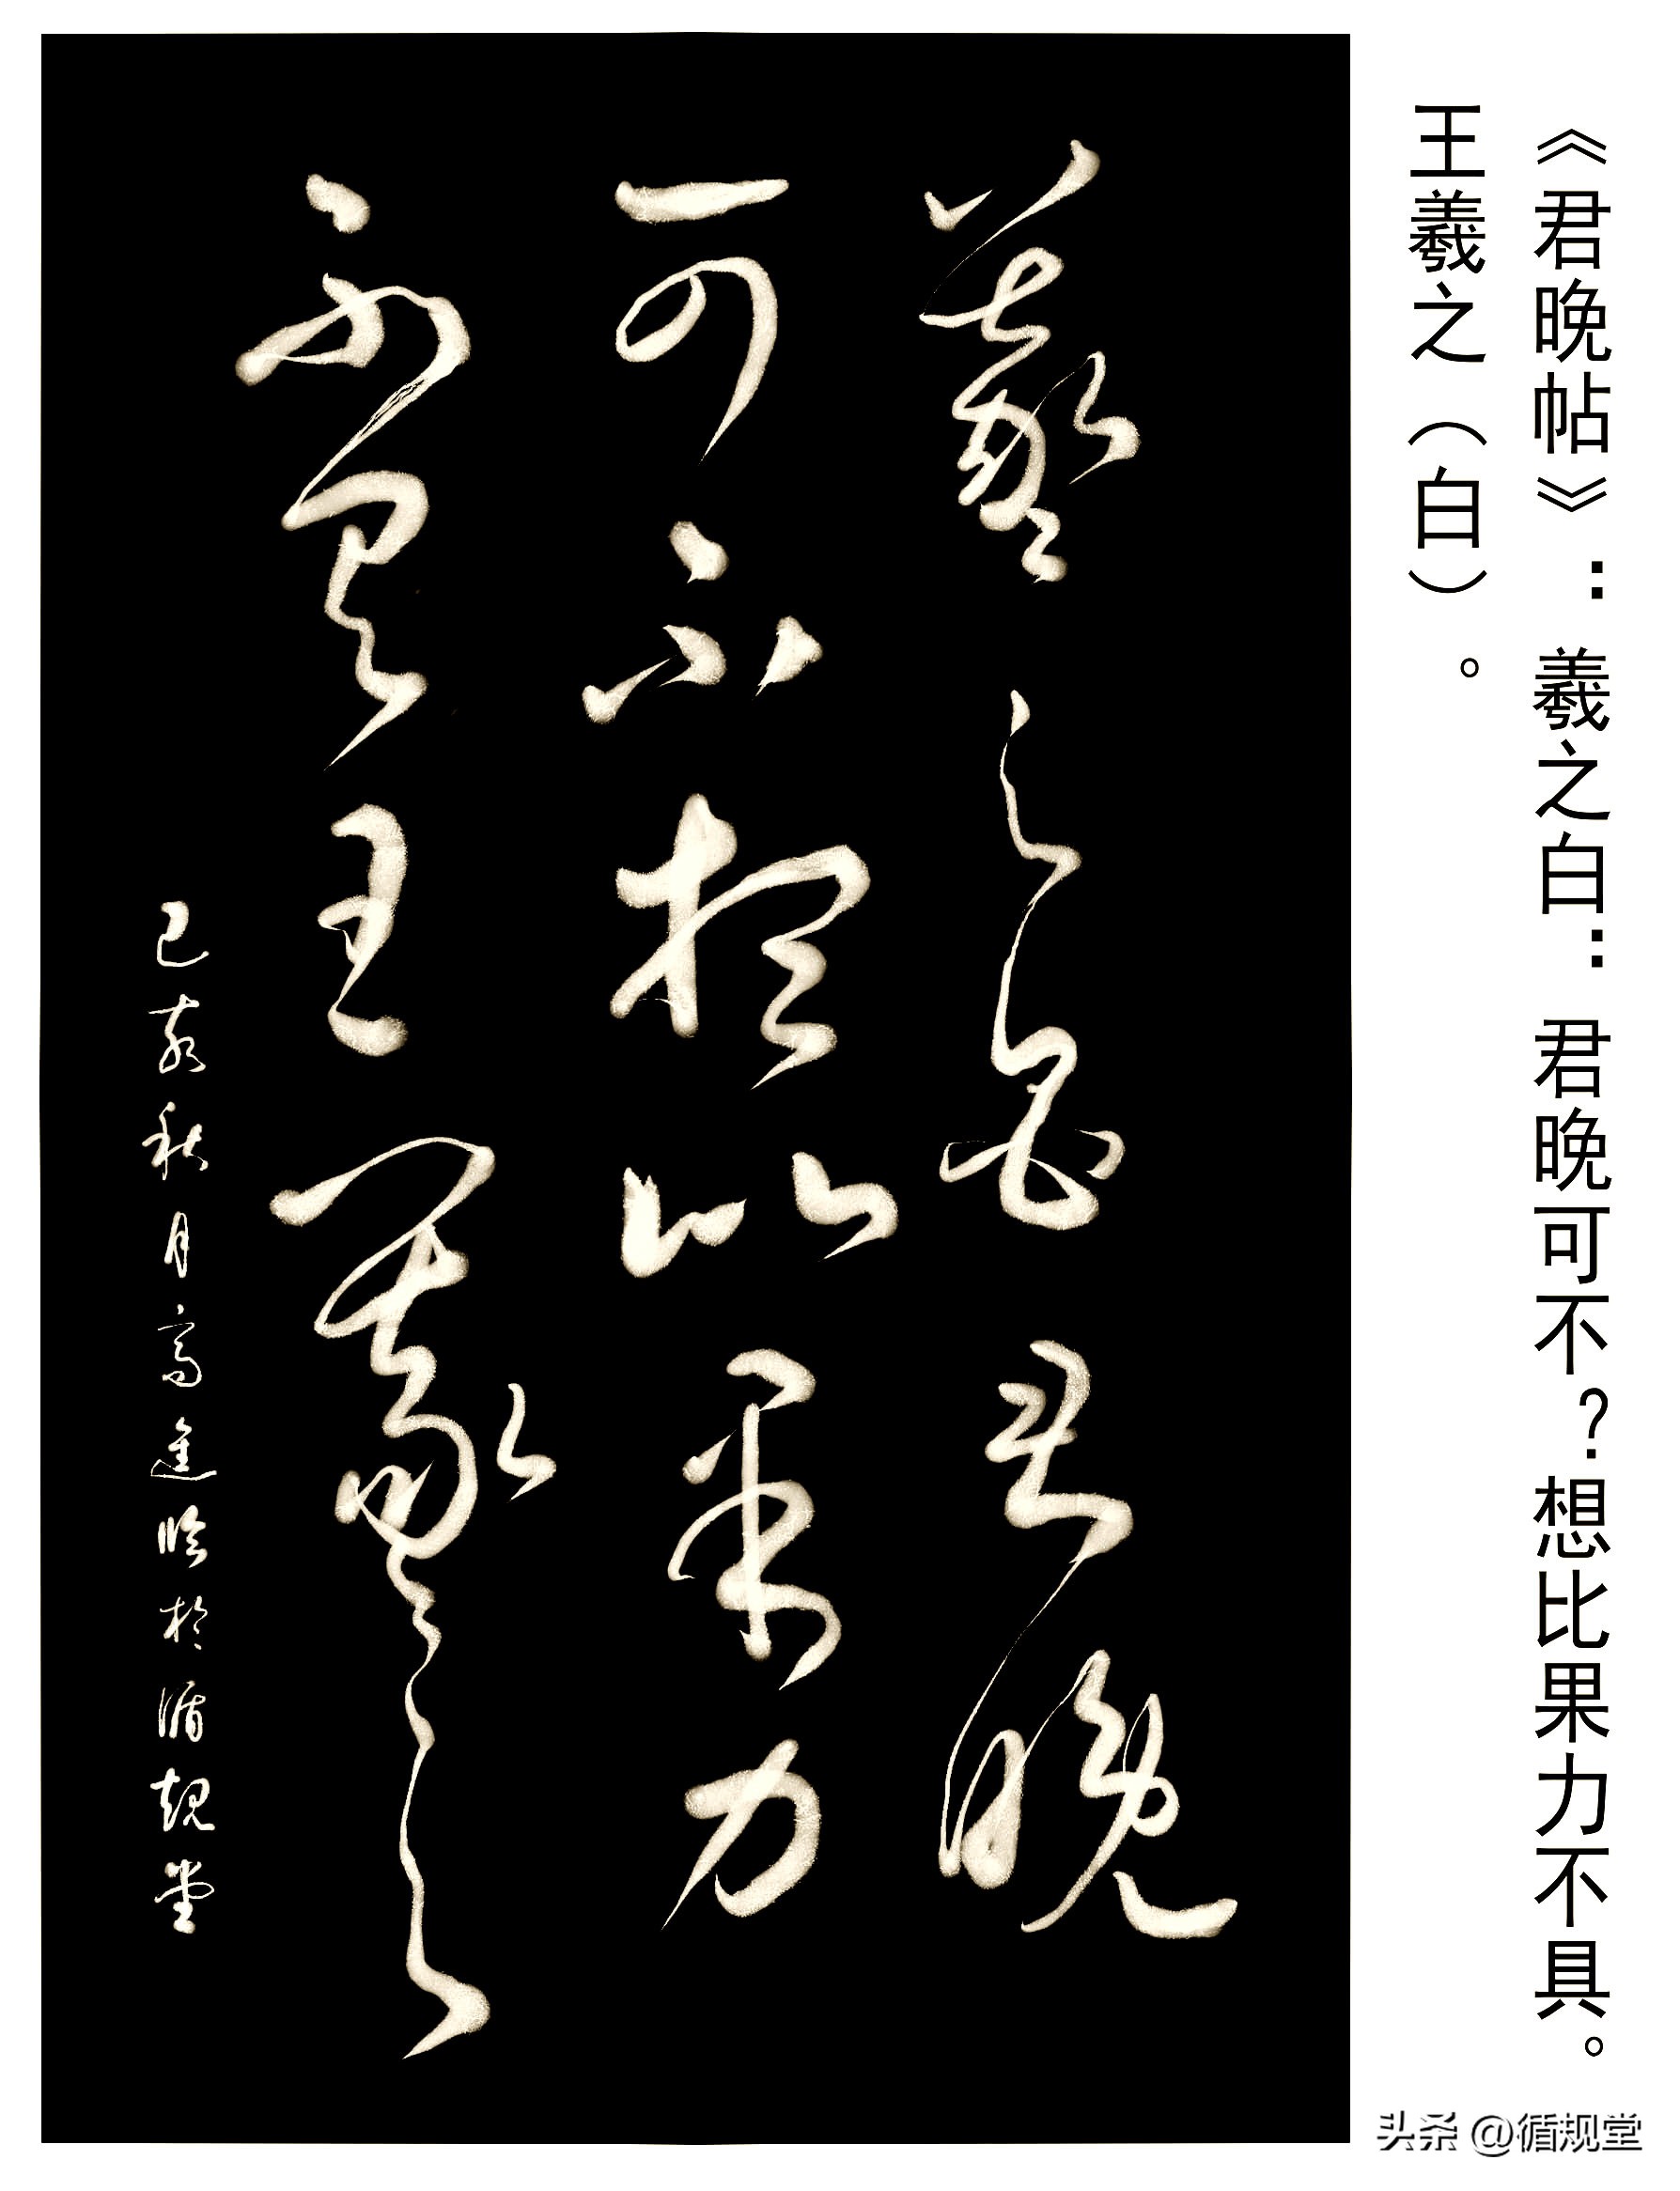 《君晚帖》：羲之白：君晚可不？想比果力不具。
王羲之（白）。
羲之白君晚
可不想比果力
不具王羲之
己亥秋月高进临于循规堂
头条@循规堂